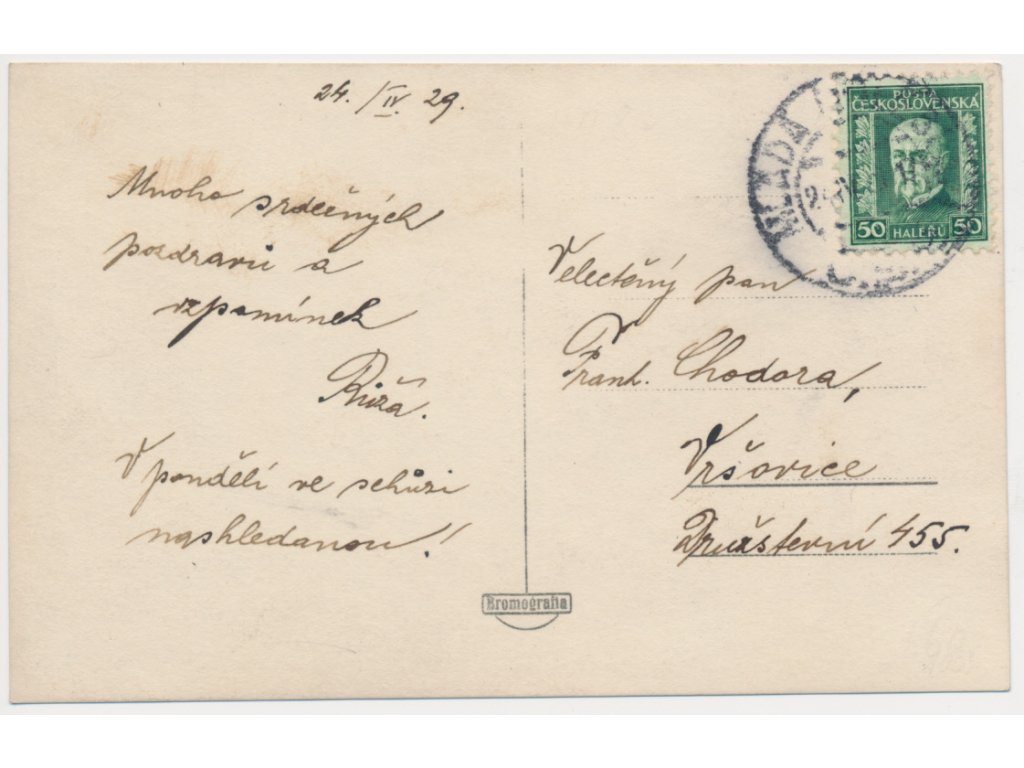 24. /IV. 29.
Mnoho srdečných
pozdravů a
vzpomínek
Růža.
V pondělí ve schůzi
nashledanou!
Velectěný pan
Frant. Chodora,
Vršovice
Družstevní 455.
POŠTA
ČESKOSLOVENSKÁ
50 HALÉŘŮ 50
MLADÁ
Bromografia